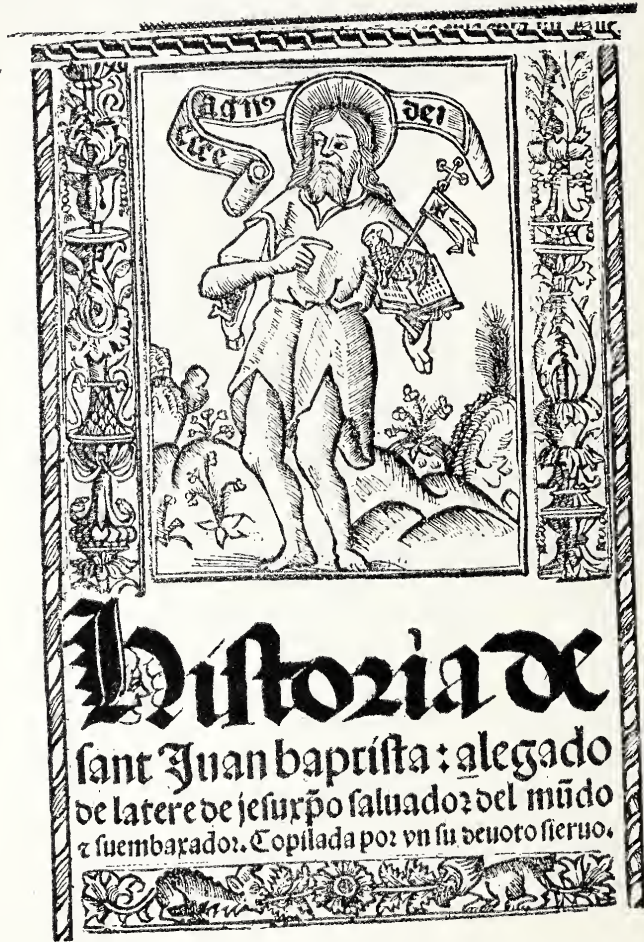 ecce agnꝰ dei
Historia de
sant Juan baptista : alegado
de latere de jesuxp̄o saluador del mūdo
⁊ su embaxador. Copilada por vn su deuoto sieruo.